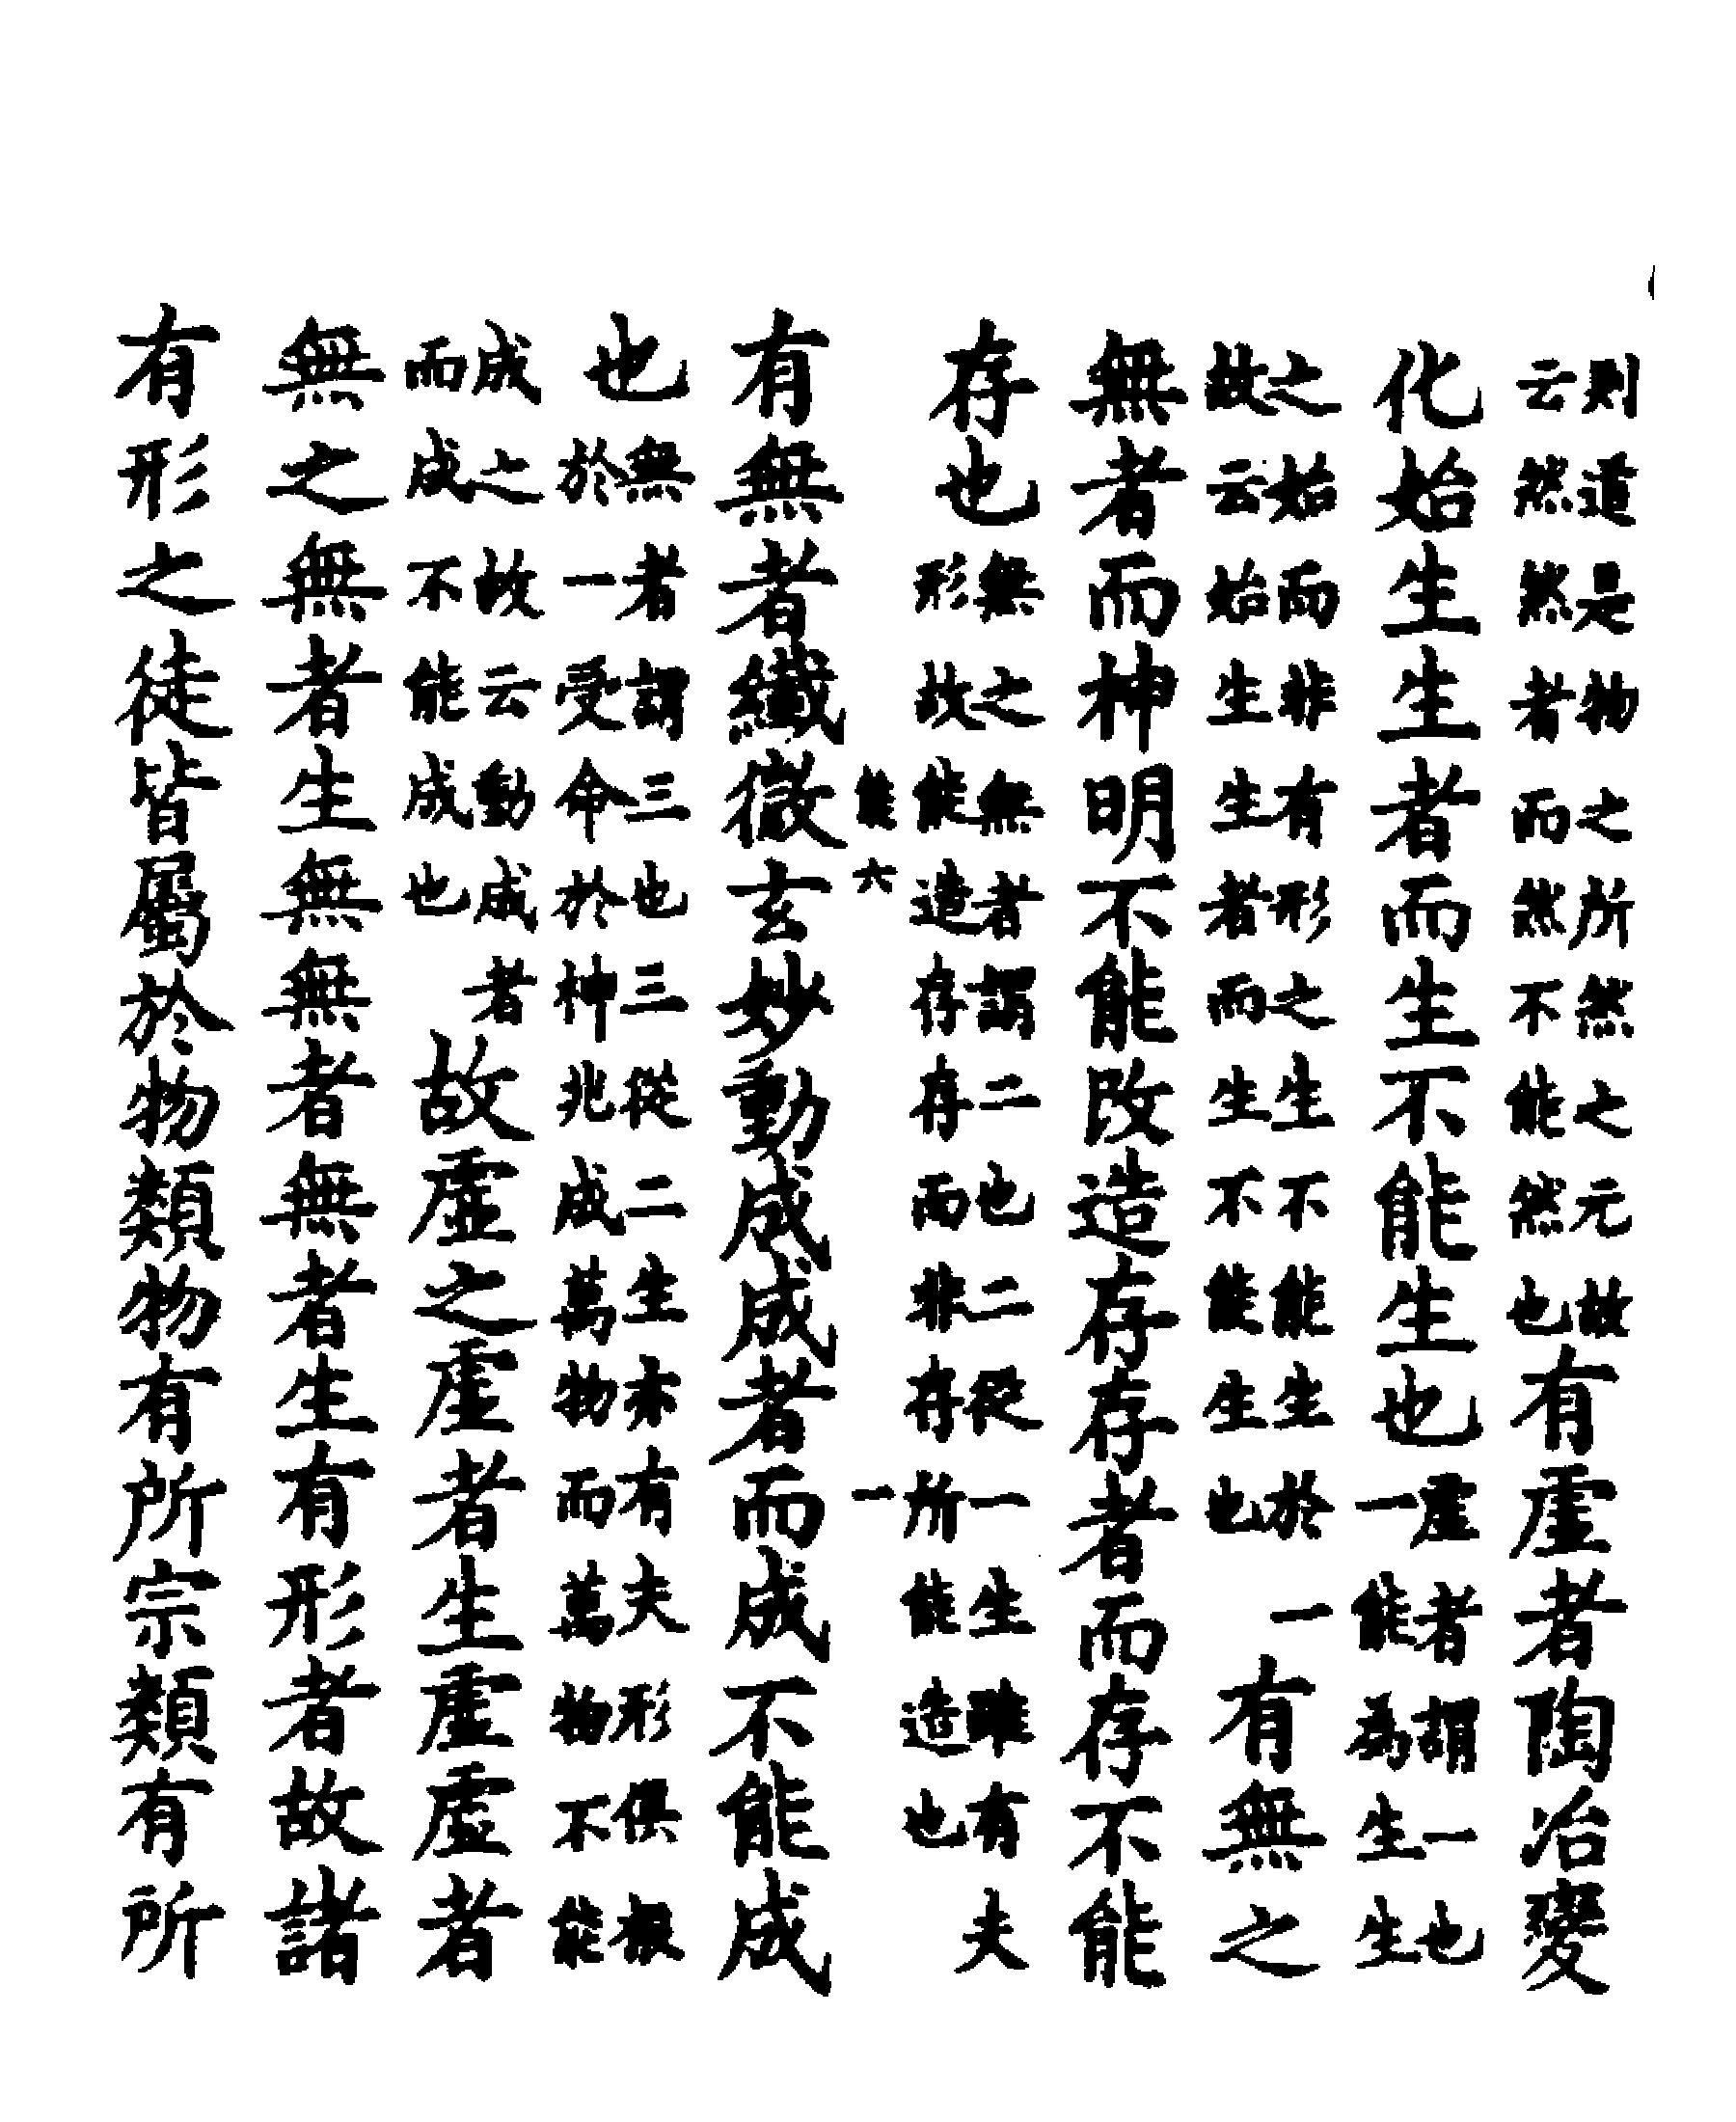 則道是物之所然之元故
云然然者而然不能然也
有虛者陶冶變
化始生生者而生不能生也
虛者謂一也
一能為生生
之始而非有形之生不能生於一
故云始生生者而生不能生也
有無之
無者而神明不能改造存存者而存不能
存也
無之無者謂二也二從一生雖有夫
形故能造存存而非存所能造也
能六　一
有無者纖微玄妙動成成者而成不能成
也
無者謂三也三從二生亦有夫形俱根
於一受命於神兆成萬物而萬物不能
成之故云動成者
而成不能成也
故虛之虛者生虛虛者
無之無者生無無者無者生有形者故諸
有形之徒皆屬於物類物有所宗類有所